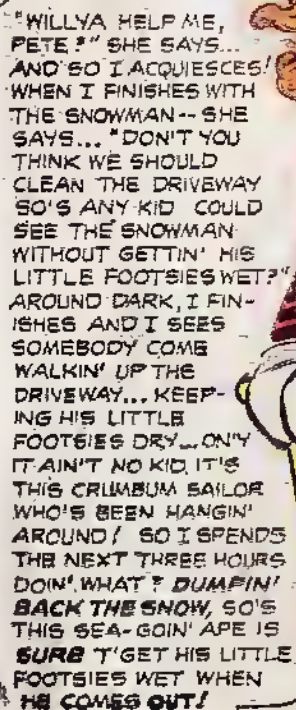 "WILLYA HELP ME,
PETE?" SHE SAYS...
AND SO I ACQUIESCES!
WHEN I FINISHES WITH
THE SNOWMAN-- SHE
SAYS... "DON'T YOU
THINK WE SHOULD
CLEAN THE DRIVEWAY
SO'S ANY KID COULD
SEE THE SNOWMAN
WITHOUT GETTIN' HIS
LITTLE FOOTSIES WET?"
AROUND DARK, I FIN-
ISHES AND I SEES
SOMEBODY COME
WALKIN' UP THE
DRIVEWAY... KEEP-
ING HIS LITTLE
FOOTSIES DRY... ON'Y
IT AIN'T NO KID, IT'S
THIS CRUMBUM SAILOR
WHO'S BEEN HANGIN'
AROUND! SO I SPENDS
THE NEXT THREE HOURS
DOIN' WHAT? DUMPIN'
BACK THE SNOW, SO'S
THIS SEA-GOIN' APE IS
SURE T'GET HIS LITTLE
FOOTSIES WET WHEN
HE COMES OUT!